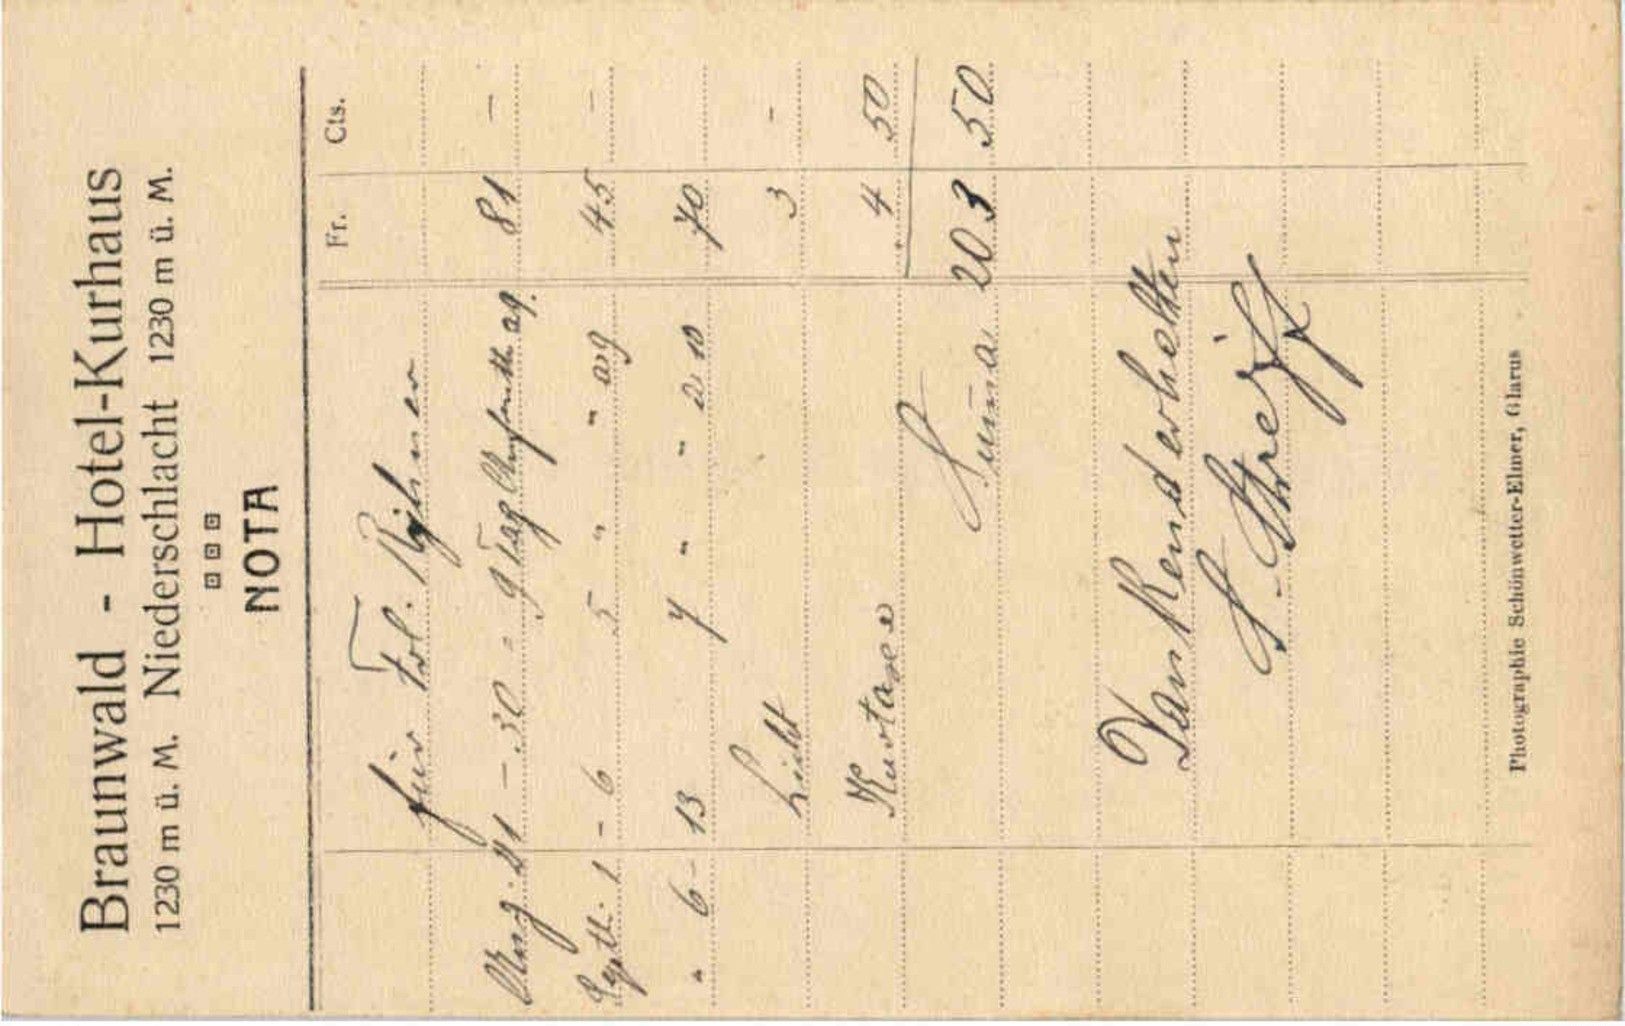 Braunwald - Hotel-Kurhaus
1230 m ü. M. Niederschlacht 1230 m ü. M.
NOTA
Fr. Cts.
für Frl.
Aug. 21 - 30 = 9 Tag Aufenth. à 9. 81 -
Septb. 1 - 6 5 " " à 9 45 -
" 6 - 13 7 " " à 10 70
Licht 3 -
Kurtaxe 4 50
Summa 203 50
Dankend erhalten
S. Streiff
Photographie Schönwetter-Elmer, Glarus